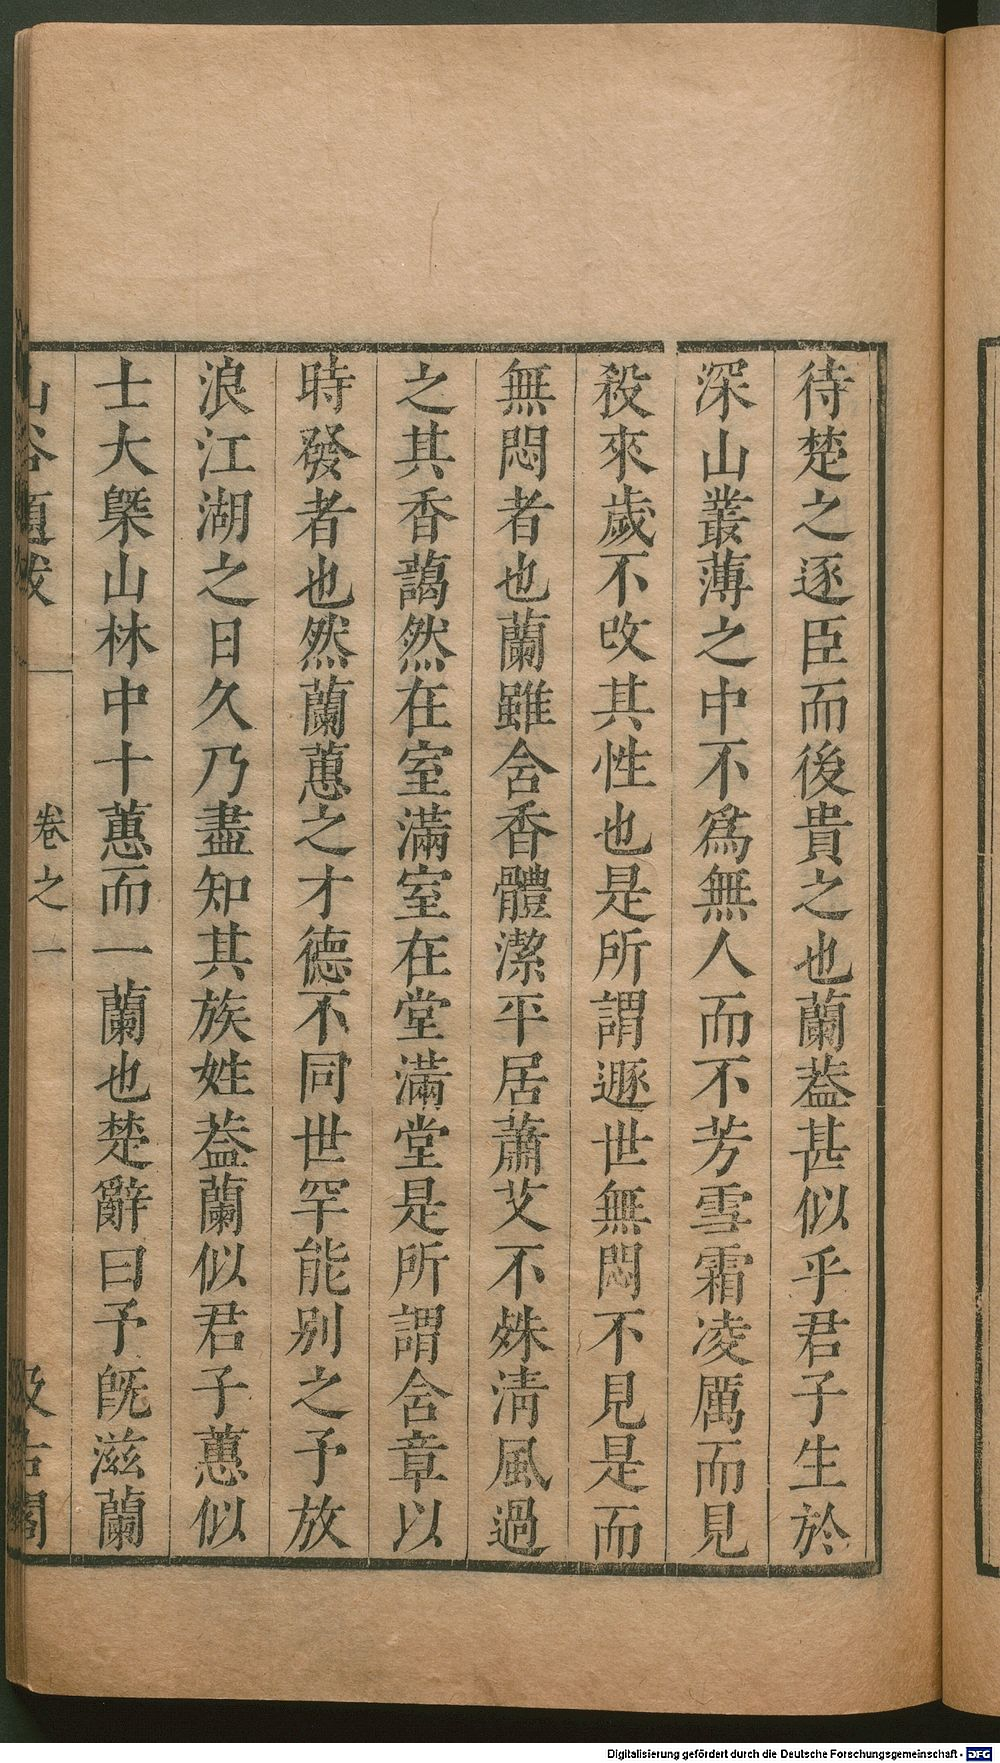 待楚之逐臣而後貴之也蘭葢甚似乎君子生於
深山叢薄之中不爲無人而不芳雪霜凌厲而見
殺來歲不改其性也是所謂遯世無悶不見是而
無悶者也蘭雖含香體潔平居蕭艾不殊淸風過
之其香藹然在室滿室在堂滿堂是所謂含章以
時發者也然蘭蕙之才德不同世罕能别之予放
浪江湖之日久乃盡知其族姓葢蘭似君子蕙似
士大槩山林中十蕙而一蘭也楚辭曰予旣滋蘭
山谷題跋 卷之一 汲古閣
Digitalisierung gefördert durch die Deutsche Forschungsgemeinschaft - DFG